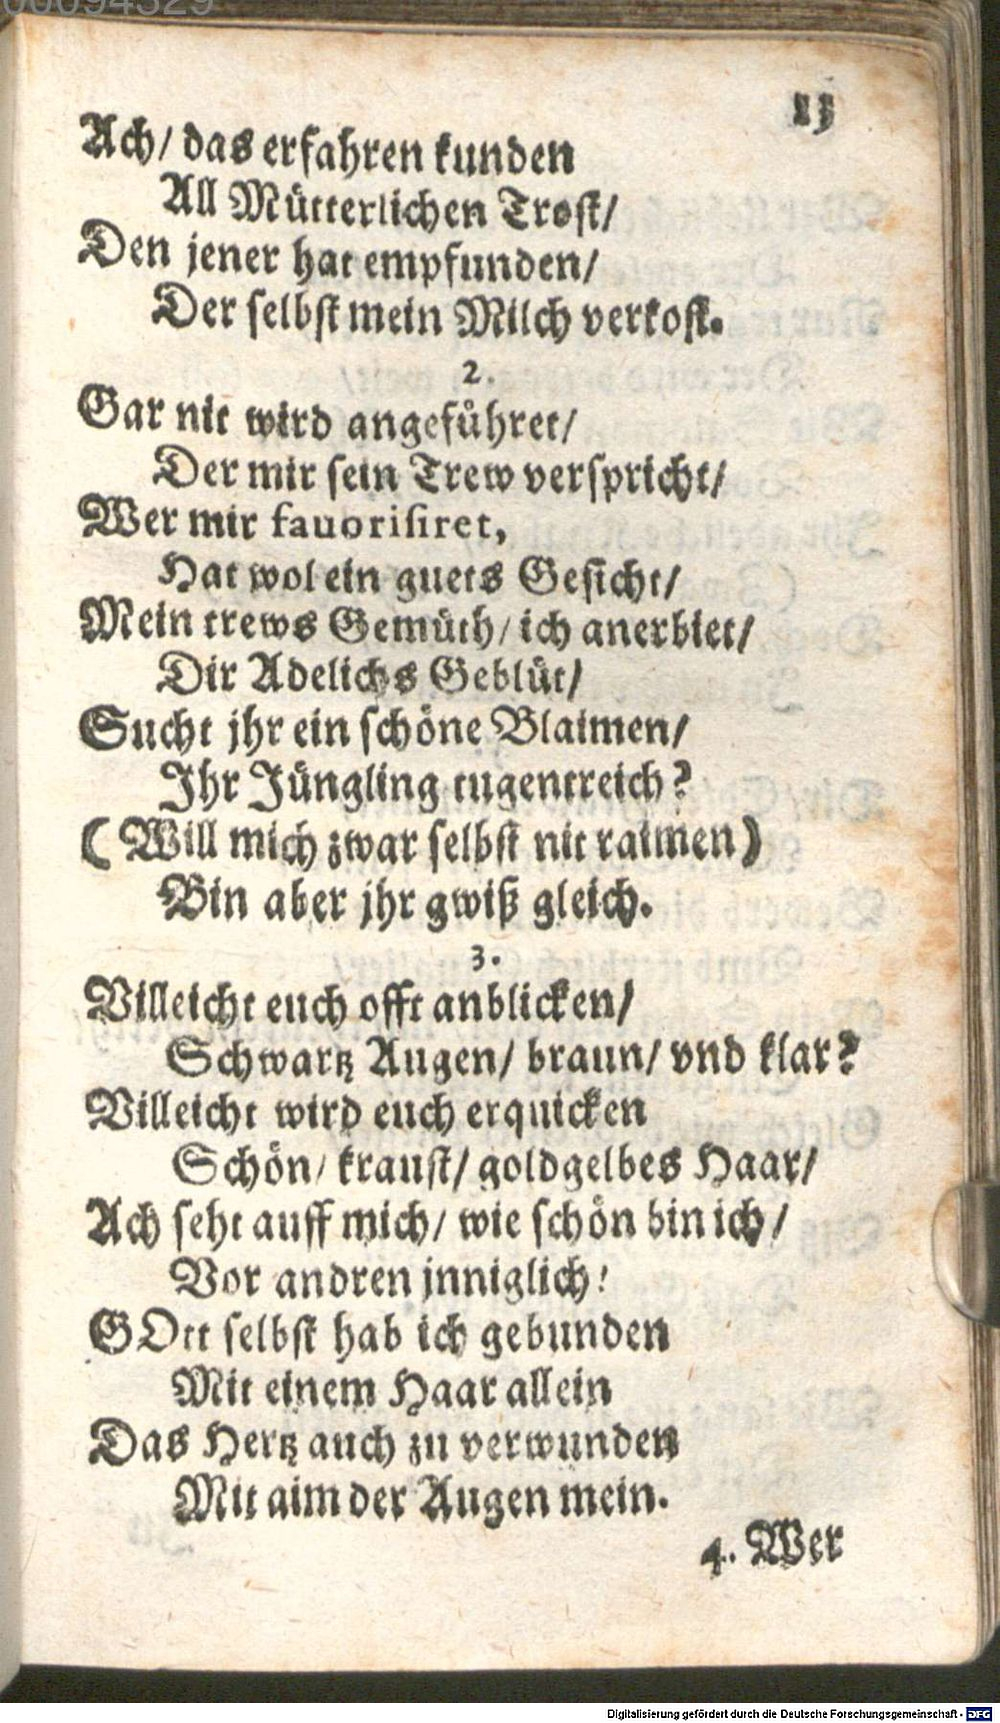 00094329
13
Ach/ das erfahren kunden
All Mütterlichen Trost/
Den jener hat empfunden/
Der selbst mein Milch verkost.
2.
Gar nit wird angeführet/
Der mir sein Trew verspricht/
Wer mir fauorisiret,
Hat wol ein guets Gesicht/
Mein trews Gemüth/ ich anerbiet/
Dir Adelichs Geblüt/
Sucht jhr ein schöne Blaimen/
Ihr Jüngling tugentreich?
(Will mich zwar selbst nit raimen)
Bin aber jhr gwiß gleich.
3.
Villeicht euch offt anblicken/
Schwartz Augen/ braun/ vnd klar?
Villeicht wird euch erquicken
Schön/ kraust/ goldgelbes Haar/
Ach seht auff mich/ wie schön bin ich/
Vor andren jnniglich!
GOtt selbst hab ich gebunden
Mit einem Haar allein
Das Hertz auch zu verwunden
Mit aim der Augen mein.
4. Wer
Digitalisierung gefördert durch die Deutsche Forschungsgemeinschaft - DFG